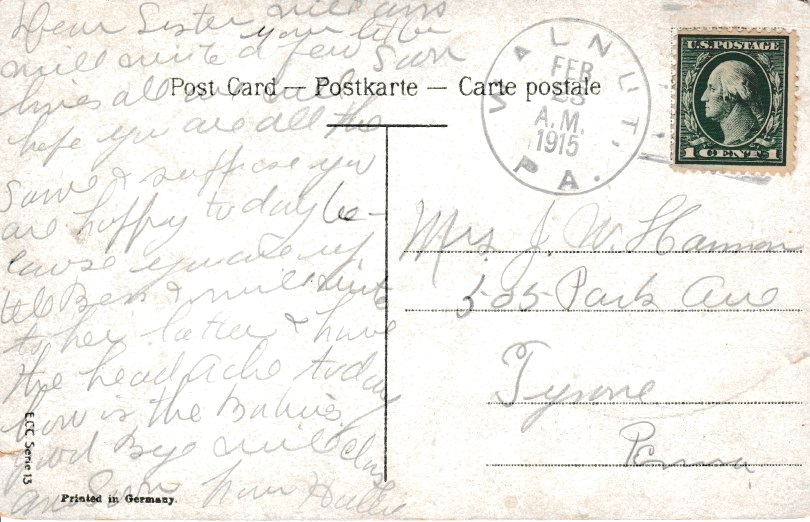 Dear Sister will ans
your letter
will write a few
lines all are well
hope you are all the
Same & suppose you
are happy today be-
cause you are up
tell Bess I will write
to her later I have
the head Ache today
how is the Babies
good Bye will close
ans Soon from
Post Card — Postkarte — Carte postale
WALNUT, PA.
FEB
23
A.M.
1915
U.S. POSTAGE
1 CENT 1
Mrs J. W. Hannon
505 Park Ave
Tyrone
Penna
ECC Serie 13
Printed in Germany.